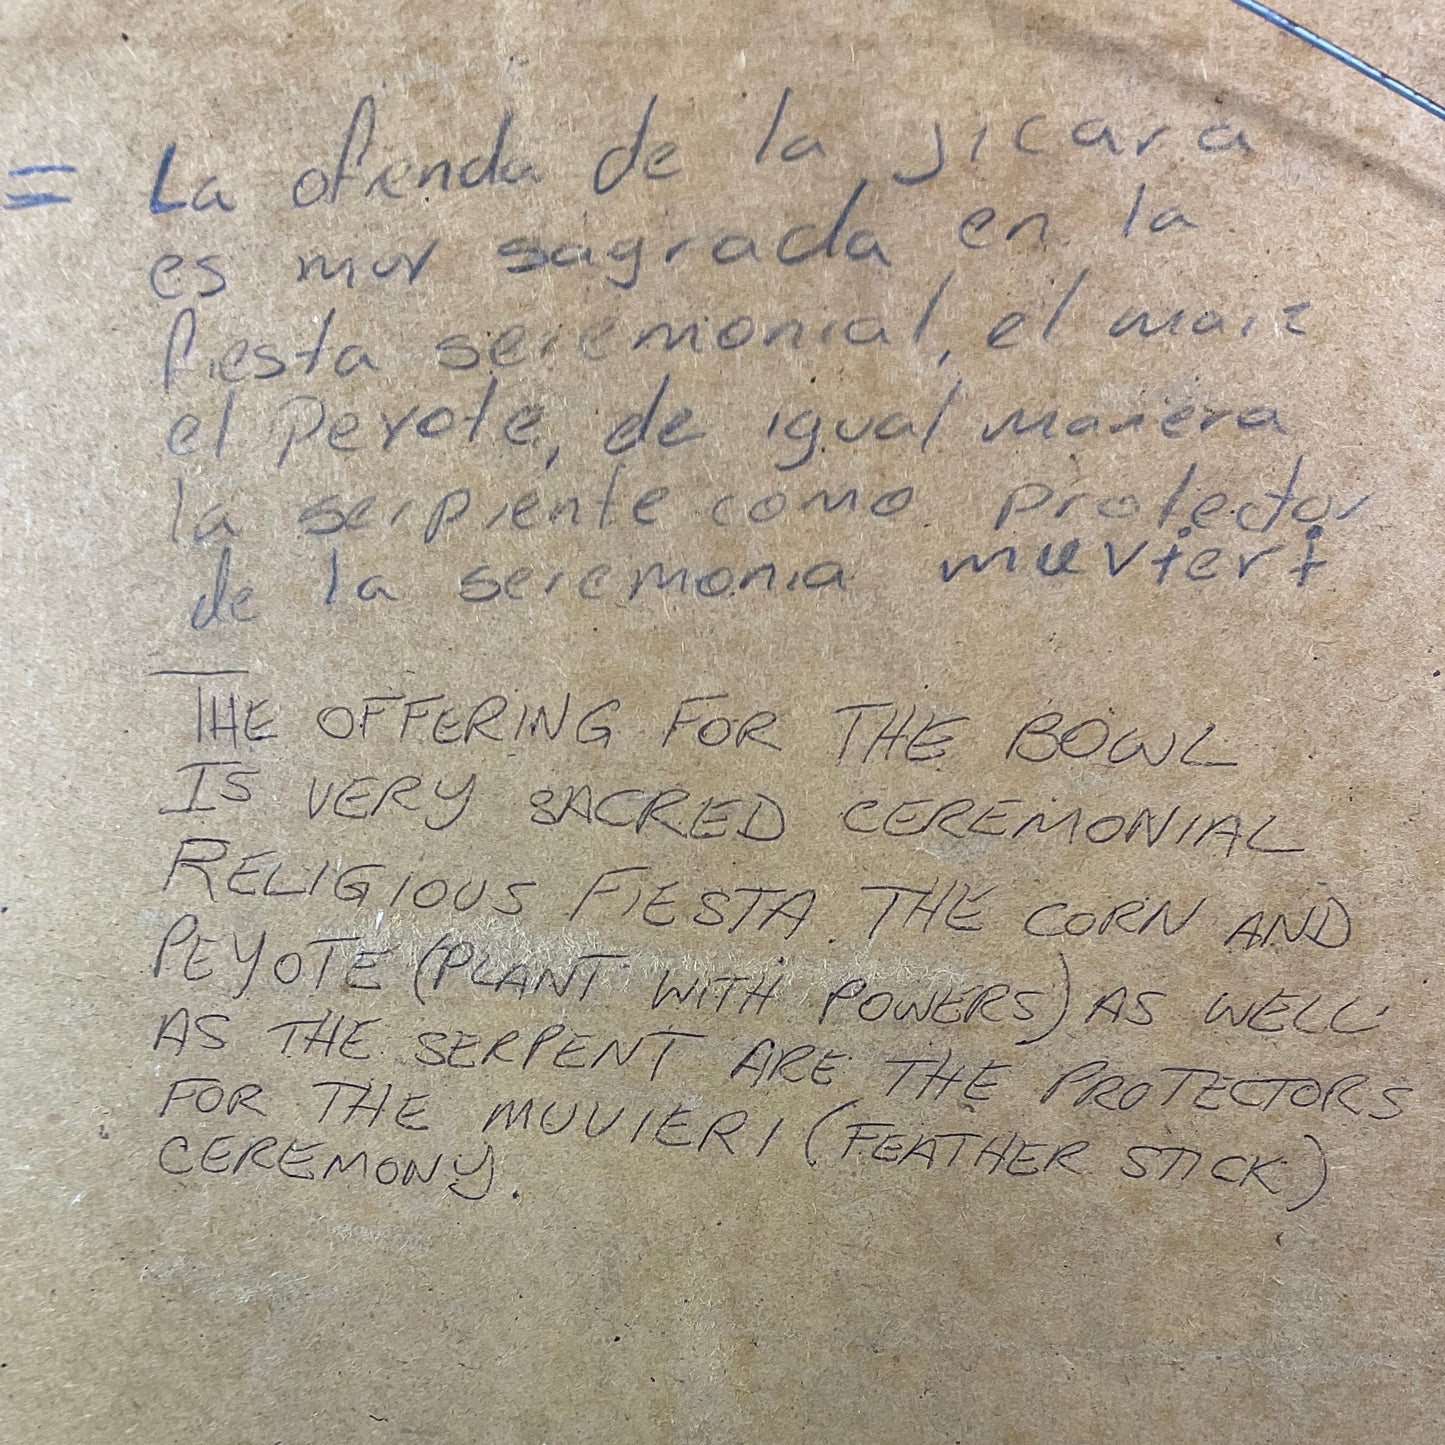 = La ofrenda de la jicara
es muy sagrada en la
fiesta seremonial, el maiz
el peyote, de igual manera
la serpiente como protector
de la seremonia muvieri
THE OFFERING FOR THE BOWL
IS VERY SACRED CEREMONIAL
RELIGIOUS FIESTA. THE CORN AND
PEYOTE (PLANT WITH POWERS) AS WELL
AS THE SERPENT ARE THE PROTECTORS
FOR THE MUVIERI (FEATHER STICK)
CEREMONY.